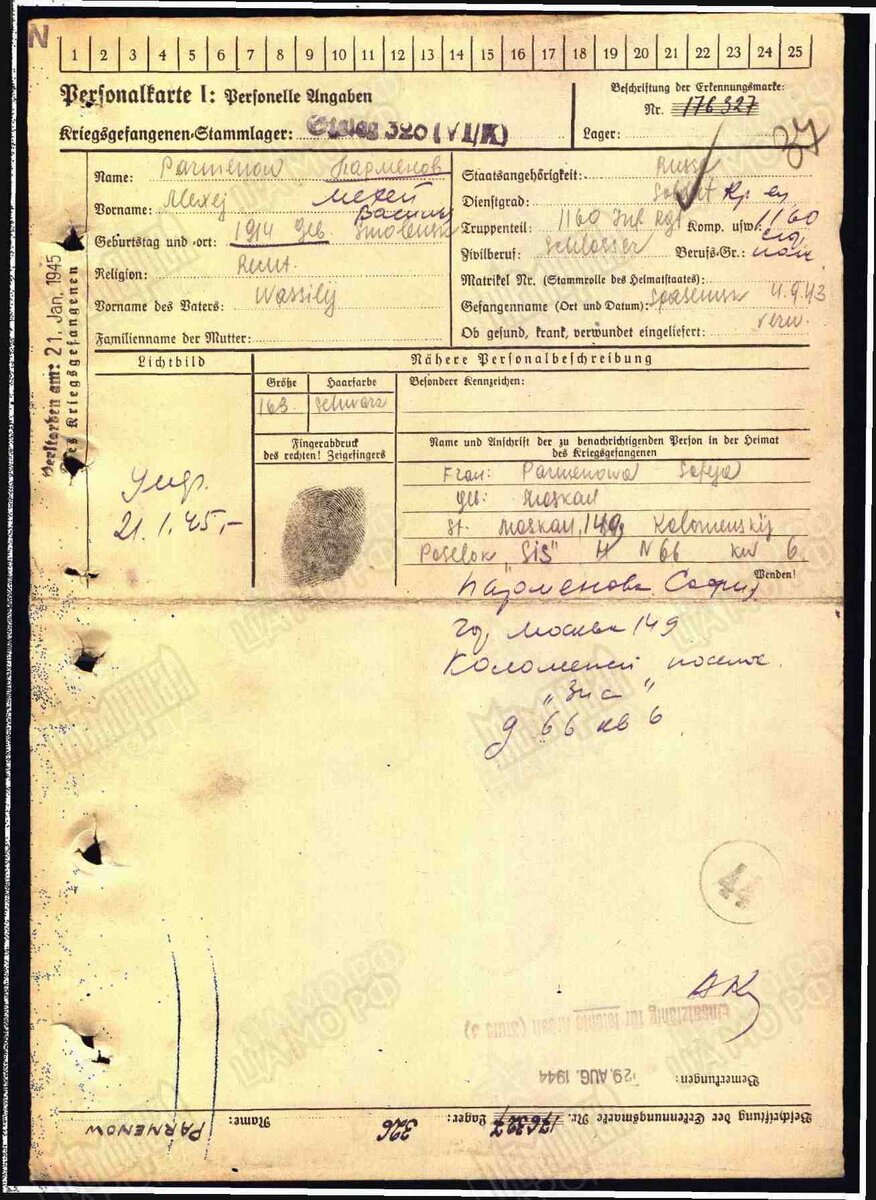 N
1 2 3 4 5 6 7 8 9 10 11 12 13 14 15 16 17 18 19 20 21 22 23 24 25
Personalkarte I: Personelle Angaben
Kriegsgefangenen-Stammlager: Stalag 326 (VI/K)
Beschriftung der Erkennungsmarke:
Nr. 176327
Lager:
37
Name: Parmenow Парменов
Vorname: Alexej
Geburtstag und -ort: 1914 geb. Smolensk
Religion:
Vorname des Vaters: Wassilij
Familienname der Mutter:
Staatsangehörigkeit: Russe
Dienstgrad: Soldat
Truppenteil: 1160 Inf Rgt Komp. usw.: 1160
Zivilberuf: Schlosser Berufs-Gr.:
Matrikel Nr. (Stammrolle des Heimatstaates):
Gefangennahme (Ort und Datum): 4.9.43
Ob gesund, krank, verwundet eingeliefert: verw.
Verstorben am: 21. Jan. 1945
des Kriegsgefangenen
Lichtbild
21.1.45,-
Nähere Personalbeschreibung
Größe Haarfarbe
Besondere Kennzeichen:
168 schwarz
Fingerabdruck
des rechten! Zeigefingers
Name und Anschrift der zu benachrichtigenden Person in der Heimat
des Kriegsgefangenen
Frau: Parmenowa Sofja
Moskau
St. Moskau, 149, Kolomenskij
Poselok "SiS" H N 66 kw 6
Wenden!
Парменова София
гор Москва 149
Коломенский поселок
"Зис"
д 66 кв 6
44
Einsatzfähig für
29. AUG. 1944
Bemerkungen:
Beschriftung der Erkennungsmarke Nr. 176327 Lager: 326 Name: PARMENOW